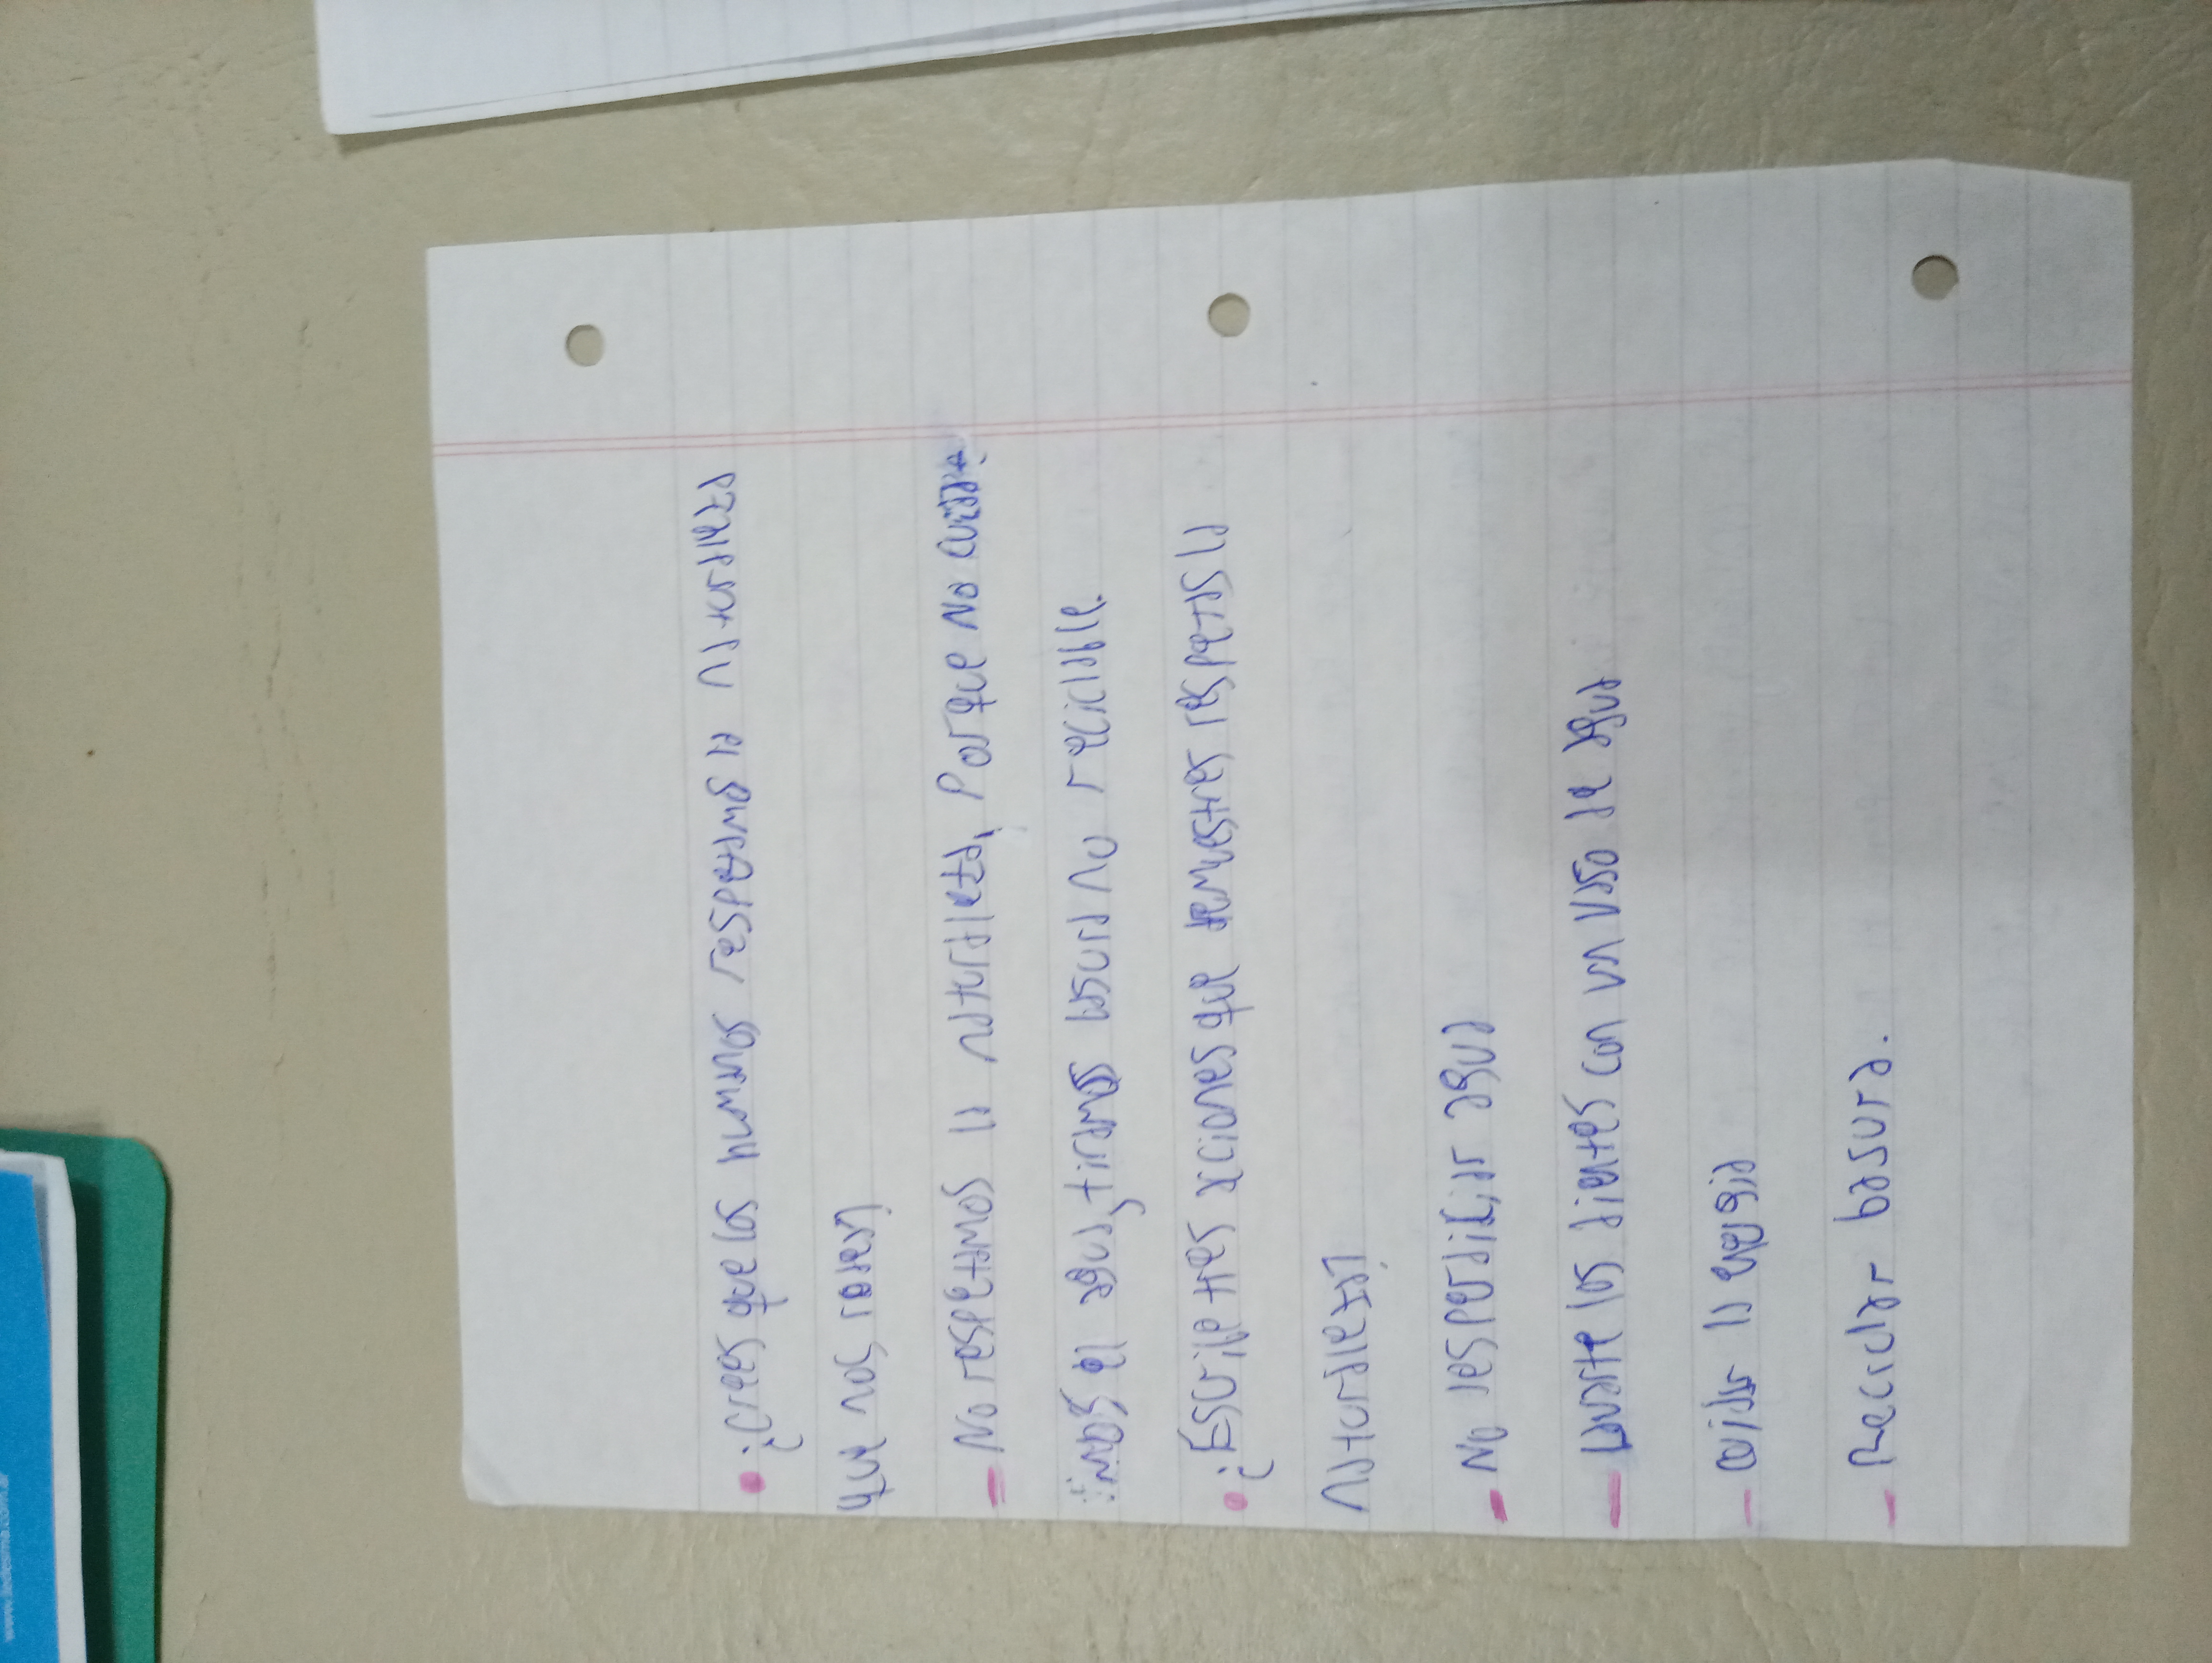 • ¿Crees que los humanos respetamos a la naturaleza
que nos rodea?
- No respetamos la naturaleza, porque no cuidamos
el agua, tiramos basura, no reciclable.
• ¿Escribe tres acciones que demuestres respetas la
naturaleza?
- No desperdiciar agua
- Lavarte los dientes con un vaso de agua
- Cuidar la energia
- Reciclar basura.
www.ledesma.com.ar